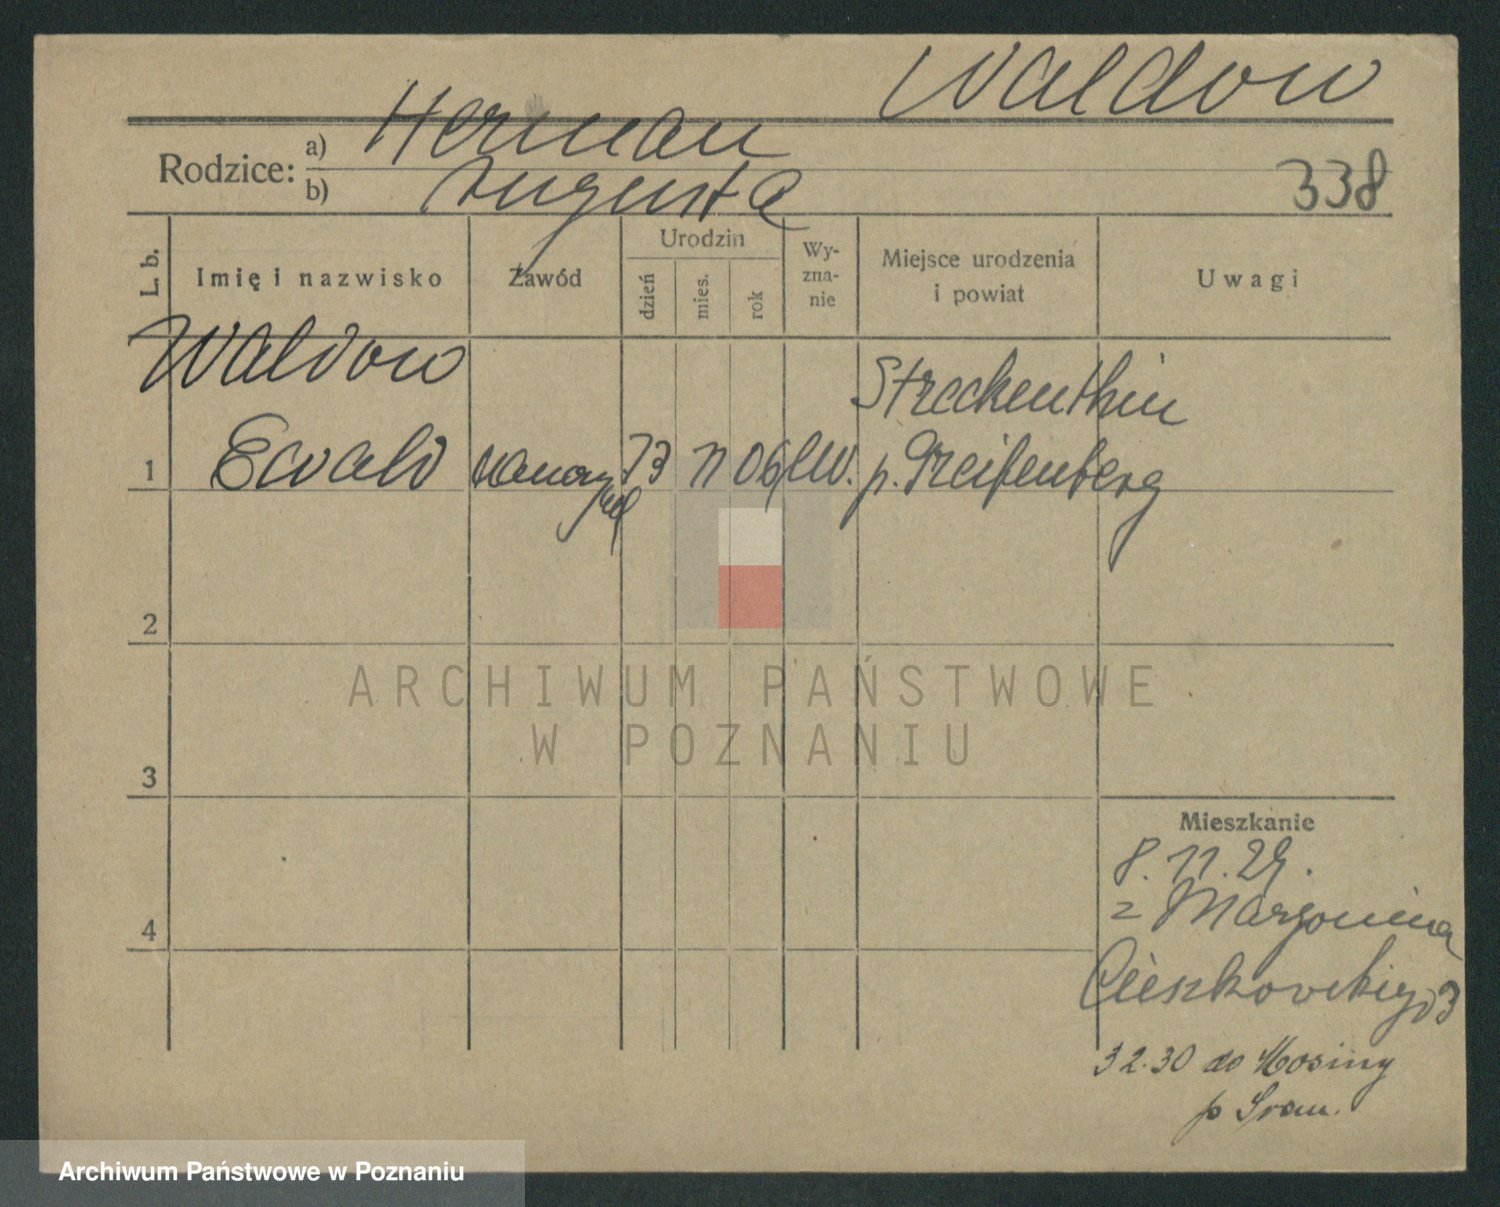 Waldow
Rodzice: a) Herman
b) Augusta
338
L. b.
Imię i nazwisko
Zawód
Urodzin
dzień
mies.
rok
Wy-
zna-
nie
Miejsce urodzenia
i powiat
Uwagi
Waldow
1 Ewald
13 11 06 ew.
Streckenthin
p. Greifenberg
2
3
4
Mieszkanie
8. 11. 29.
z Margonina
Cieszkowskiego 3
3 2.30 do Mosiny
p Śrem.
ARCHIWUM PAŃSTWOWE
W POZNANIU
Archiwum Państwowe w Poznaniu